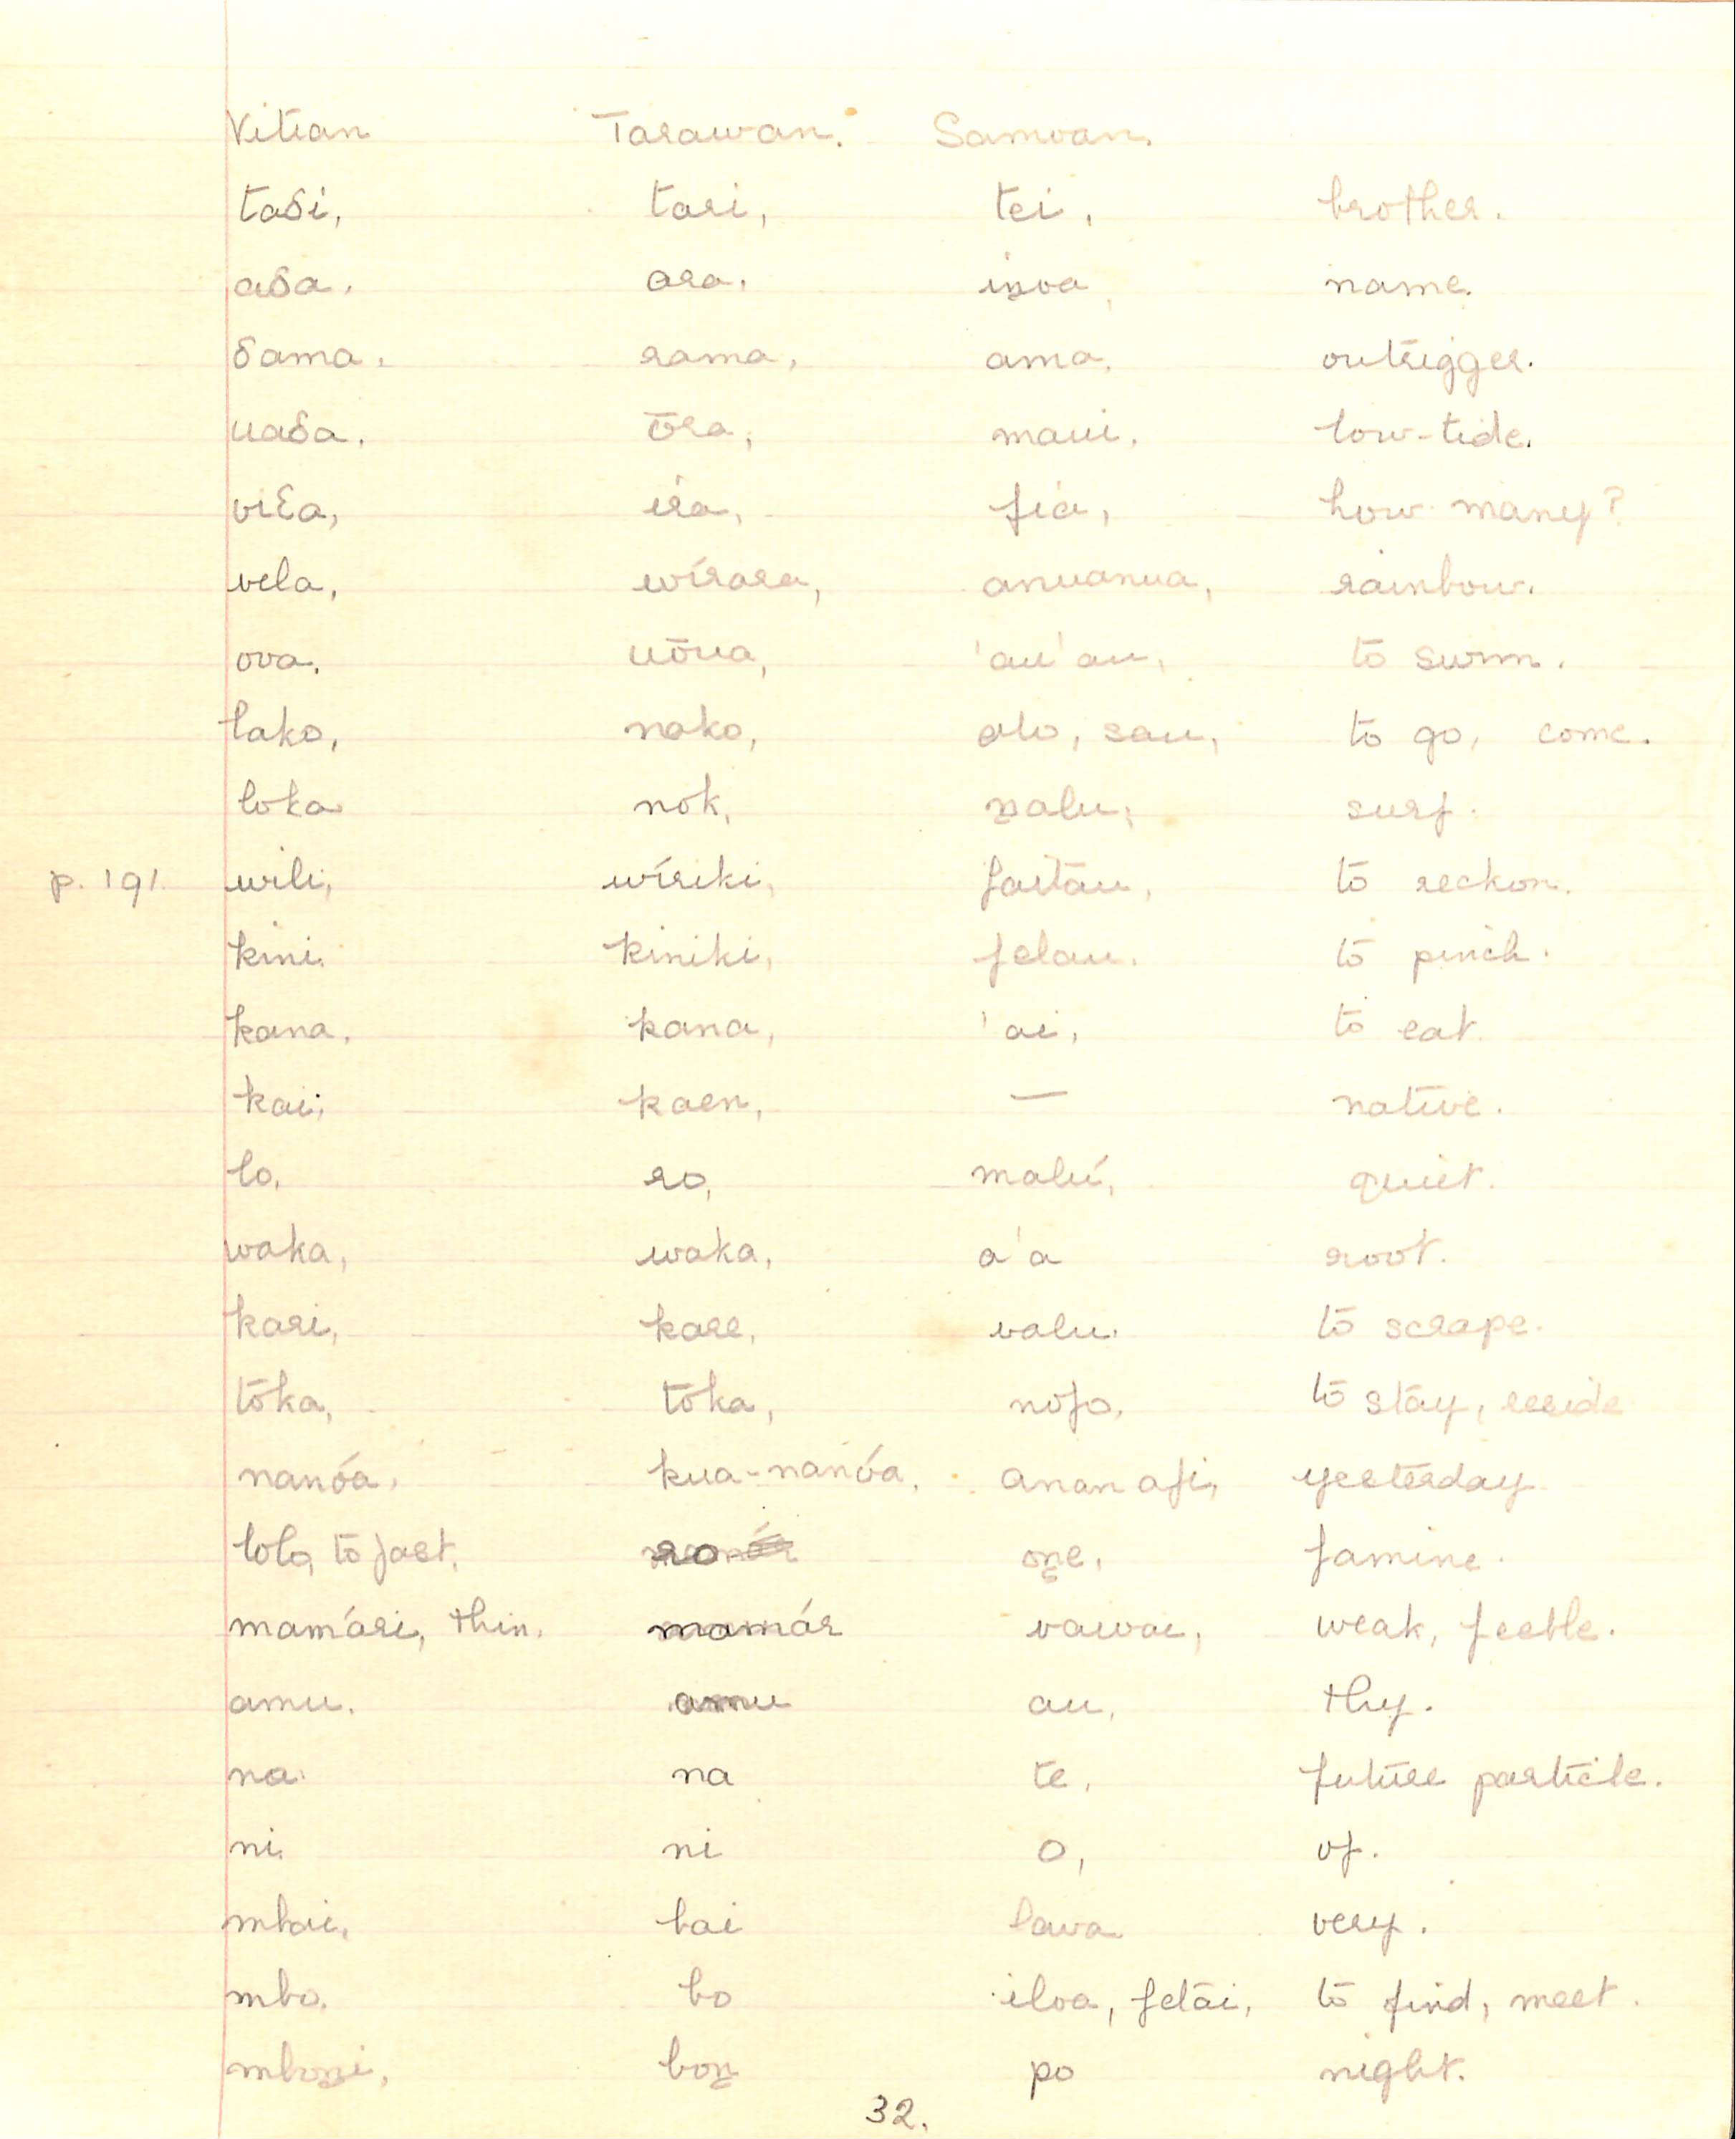 Vitian Tarawan. Samoan.
taδi, tari, tei, brother.
aδa, ara, iŋoa, name.
δama, rama, ama, outrigger.
uaδa, ōra, maui, low-tide.
viδa, ira, fia, how many?
vela, wírara, anuanua, rainbow.
ova, uōua, 'au'au, to swim.
lako, nako, alo, sau, to go, come.
loka nok, ŋalu, surf.
p. 191. wili, wíriki, faitau, to reckon.
kini, kiniki, felau, to pinch.
kana, kana, 'ai, to eat.
kai, kaen, — native.
lo, ro, malú, quiet.
waka, waka, a'a root.
kari, kare, valu, to scrape.
toka, toka, nofo, to stay, reside
nanóa, kua-nanóa, ananafi, yesterday
lolo, to fast, ro oŋe, famine.
mamári, thin, mamár vaivai, weak, feeble.
amu, amu au, thy.
na na te, future particle.
ni ni o, of.
mbai, bai lava very.
mbo, bo iloa, fetai, to find, meet.
mboŋi, boŋ po night.
32.